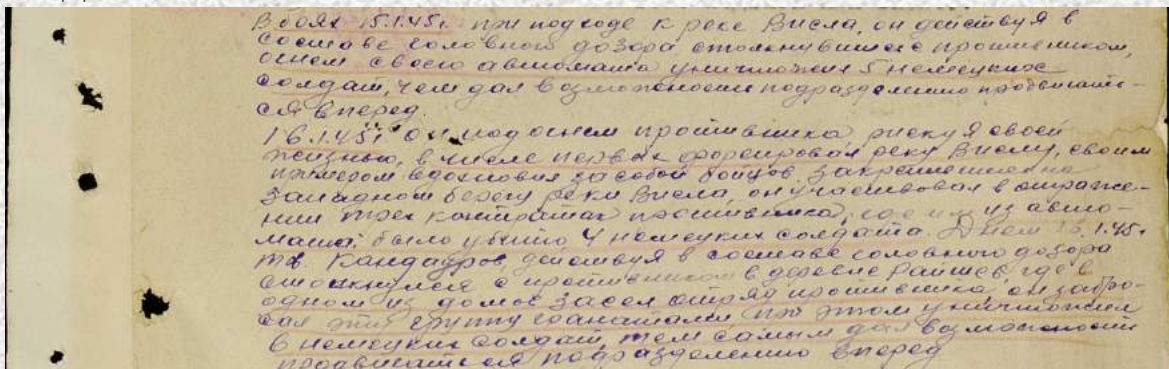 В боях 15.1.45г. при подходе к реке Висла, он действуя в
составе головного дозора столкнувшись с противником,
огнем своего автомата уничтожил 5 немецких
солдат, чем дал возможность подразделению продвигать-
ся вперед
16.1.45г. он под огнем противника рискуя своей
жизнью, в числе первых форсировал реку Вислу, своим
примером вдохновил за собой бойцов. Закрепившись на
западном берегу реки Висла, он участвовал в отраже-
нии трех контратак противника, где им из авто-
мата было убито 4 немецких солдата. Днем 16.1.45г
тв. Кандауров действуя в составе головного дозора
столкнулся с противником в деревне Райшев, где в
одном из домов засел отряд противника, он забро-
сал эту группу гранатами при этом уничтожил
6 немецких солдат, тем самым дал возможность
продвигаться подразделению вперед